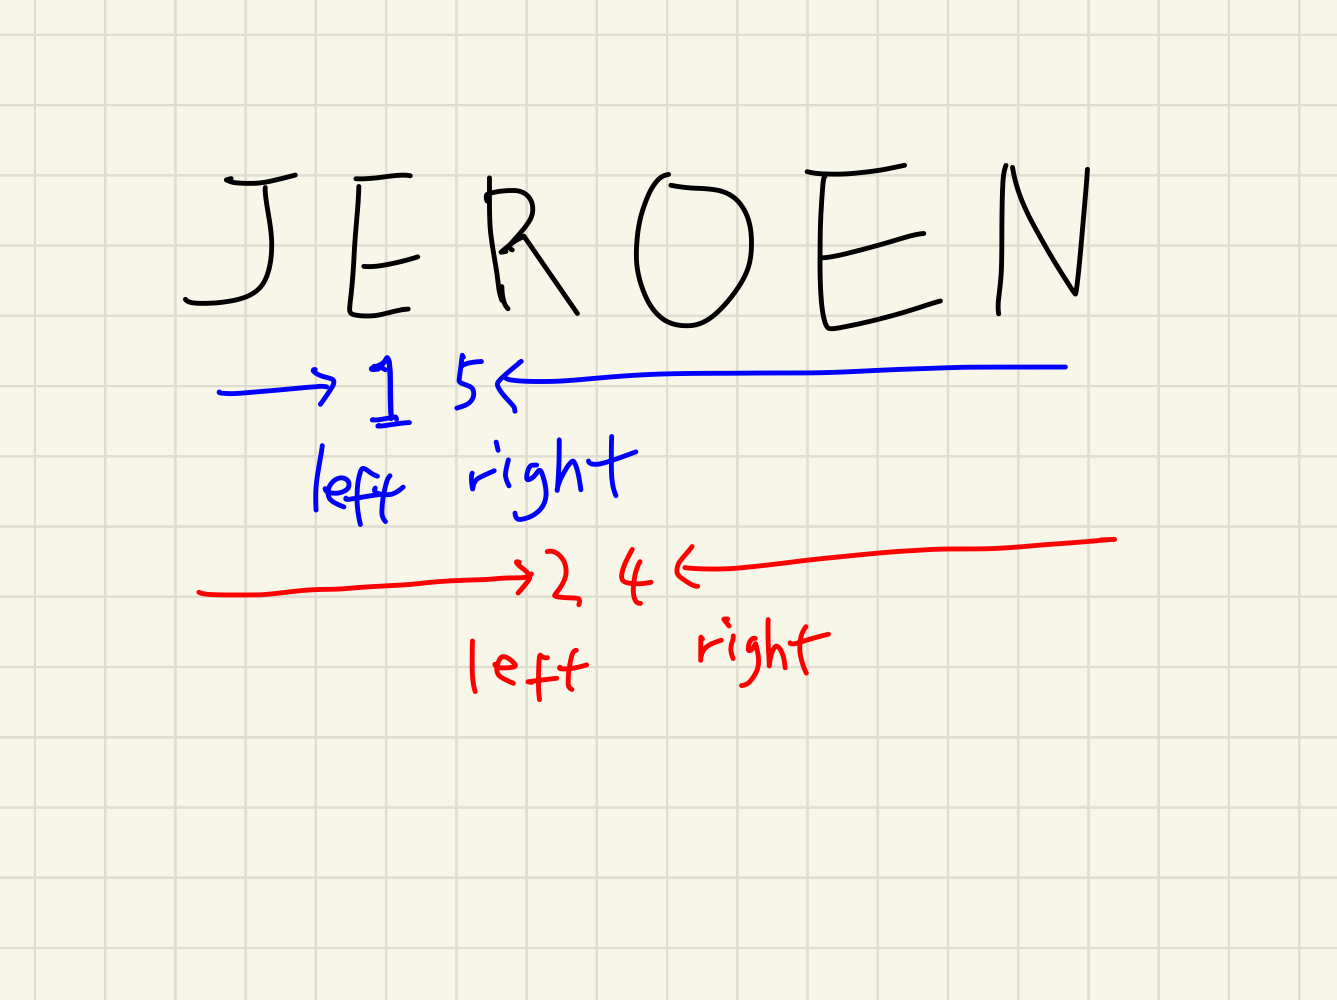 JEROEN
→ 1 5 ←
left right
→ 2 4 ←
left right